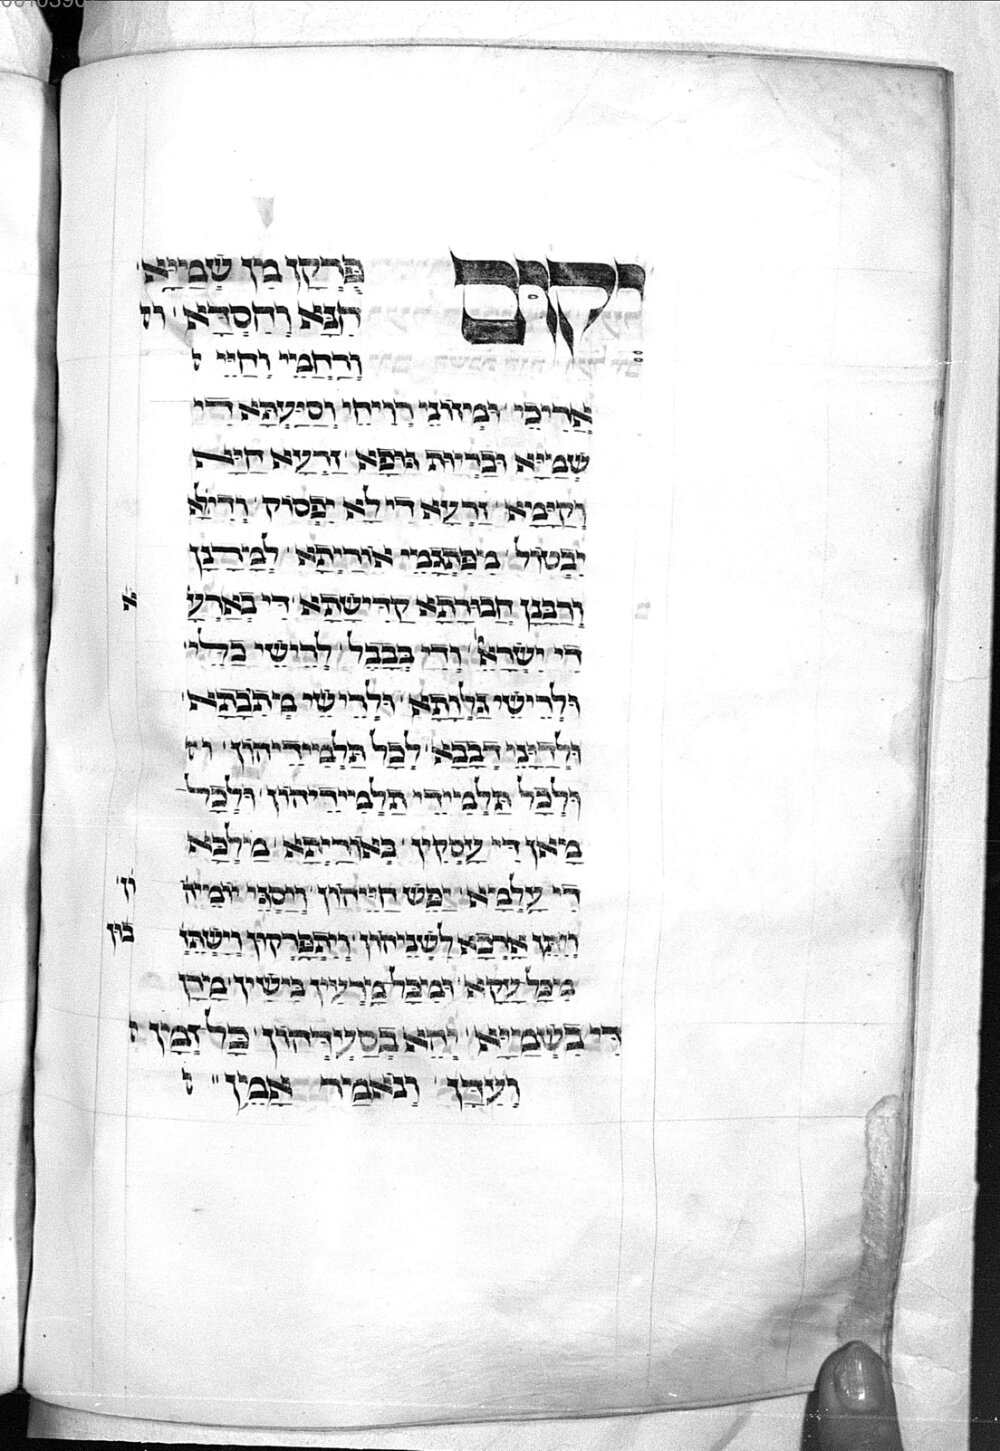 יְקוּם
פָּרְקָן מִן שְׁמַיָּא
חִנָּא וְחִסְדָּא וֹ
וְרַחֲמֵי וְחַיֵּי
אֲרִיכֵי וּמְזוֹנֵי רְוִיחֵי וְסִיַּעְתָּא דִי
שְׁמַיָּא וּבַרְיוּת גּוּפָא זַרְעָא חַיָּא
וְקַיָּמָא זַרְעָא דִי לָא יִפְסוֹק וְדִילָא
יִבְטוֹל מִפִּתְגָמֵי אוֹרַיְתָא לְמָרָנָן
וְרַבָּנָן חֲבוּרָתָא קַדִּישָׁתָא דִי בְאַרְעָ א
דִי יִשְׂרָאֵ וְדִי בְּבָבֶל לְרֵישֵׁי כַלֵּי
וּלְרֵישֵׁי גַּלְוָתָא וּלְרֵישֵׁי מְתִבָתָא
וּלְדַיָּנֵי דְבָבָא לְכָל תַּלְמִידֵיהוֹן
וּלְכָל תַּלְמִידֵי תַלְמִידֵיהוֹן וּלְכָל
מָאן דִּי עָסְקִין בְּאוֹרַיְתָא מַלְכָּא
דִי עָלְמָא יַפֵּשׁ חַיֵּיהוֹן וְיַסְגֵּי יוֹמֵיה וֹן
וְיִתֵּן אַרְכָּא לִשְׁנֵיהוֹן וְיִתְפָּרְקוּן וְיִשְׁתֵּזְ בוּן
מִכָּל עָקָא וּמִכָּל מַרְעִין בִּישִׁין מָרָן
דִּי בִשְׁמַיָּא יְהֵא בְסַעְדְּהוֹן כָּל זְמָן
וְעִדָּן וְנֹאמַר אָמֵן